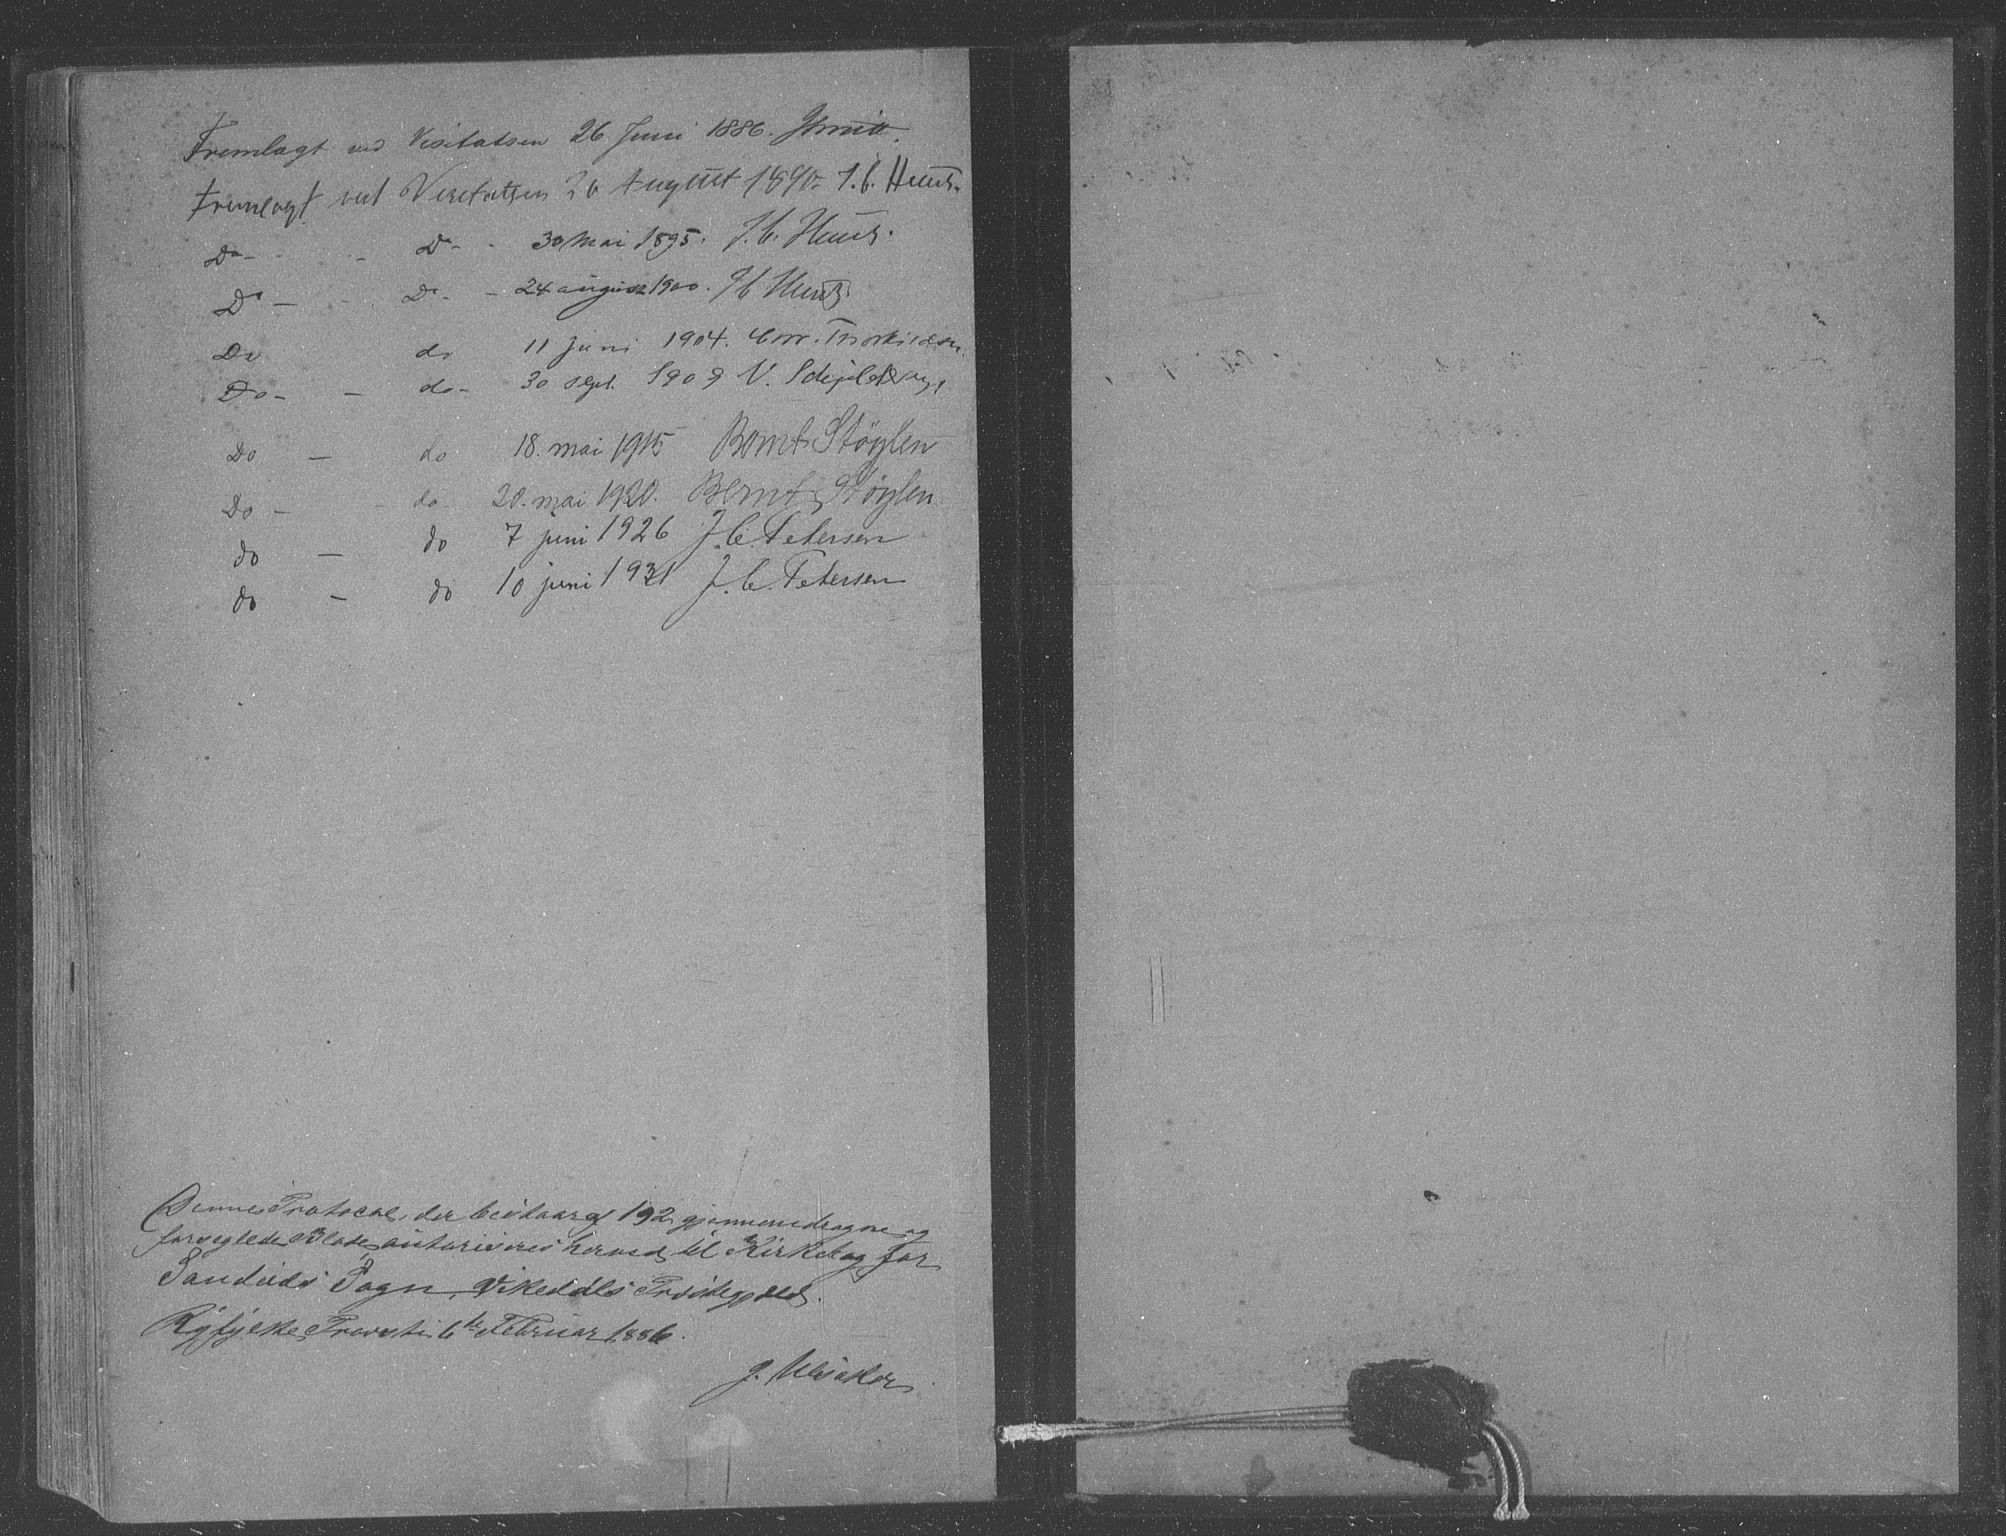 Fremlagt ved Visitatsen 26 Juni 1886.
Fremlagt ved Visitatsen 20 August 1890. J. C. Heuch.
Do - - - Do - - 30 Mai 1895. J. C. Heuch.
Do - - - Do - - 24 august 1900. J C Heuch
Do do 11 Juni 1904. Chr. Thorkildsen.
Do - - do - 30 sept. 1909 V. Schjelderup,
Do - do 18. mai 1915 Bernt Støylen
Do - - do. 20. mai 1920. Bernt Støylen
do - do 7 juni 1926 J. C. Petersen
do - do 10 juni 1931 J. C. Petersen
Denne Protocol, der bestaar af 192 gjennemdragne og
forseglede Blade, autoriseres herved til Kirkebog for
Sandeids Sogn, Vikedals Præstegjæld.
Ryfylke Provsti 6te Februar 1886.